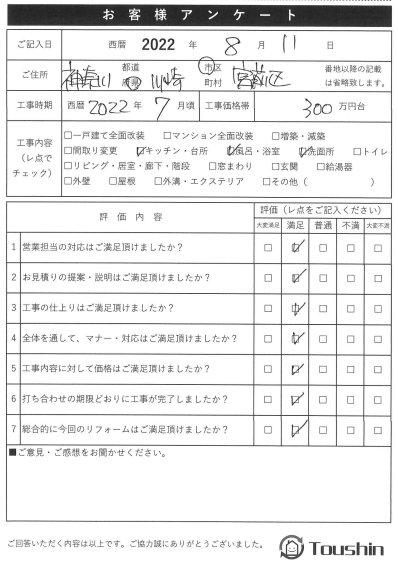 お客様アンケート
ご記入日 西暦 2022 年 8 月 11 日
ご住所 神奈川 都道府県 川崎 市区町村 宮前区 番地以降の記載は省略致します。
工事時期 西暦 2022 年 7 月頃 工事価格帯 300 万円台
工事内容（レ点でチェック）
□一戸建て全面改装 □マンション全面改装 □増築・減築
□間取り変更 ☑キッチン・台所 ☑風呂・浴室 ☑洗面所 □トイレ
□リビング・居室・廊下・階段 □窓まわり □玄関 □給湯器
□外壁 □屋根 □外溝・エクステリア □その他（ ）
評価内容 評価（レ点をご記入ください）
大変満足 満足 普通 不満 大変不満
1 営業担当の対応はご満足頂けましたか？ □ ☑ □ □ □
2 お見積りの提案・説明はご満足頂けましたか？ □ ☑ □ □ □
3 工事の仕上りはご満足頂けましたか？ □ ☑ □ □ □
4 全体を通して、マナー・対応はご満足頂けましたか？ □ ☑ □ □ □
5 工事内容に対して価格はご満足頂けましたか？ □ ☑ □ □ □
6 打ち合わせの期限どおりに工事が完了しましたか？ □ ☑ □ □ □
7 総合的に今回のリフォームはご満足頂けましたか？ □ ☑ □ □ □
■ご意見・ご感想をお聞かせください。
ご回答いただく内容は以上です。ご協力誠にありがとうございました。 Toushin